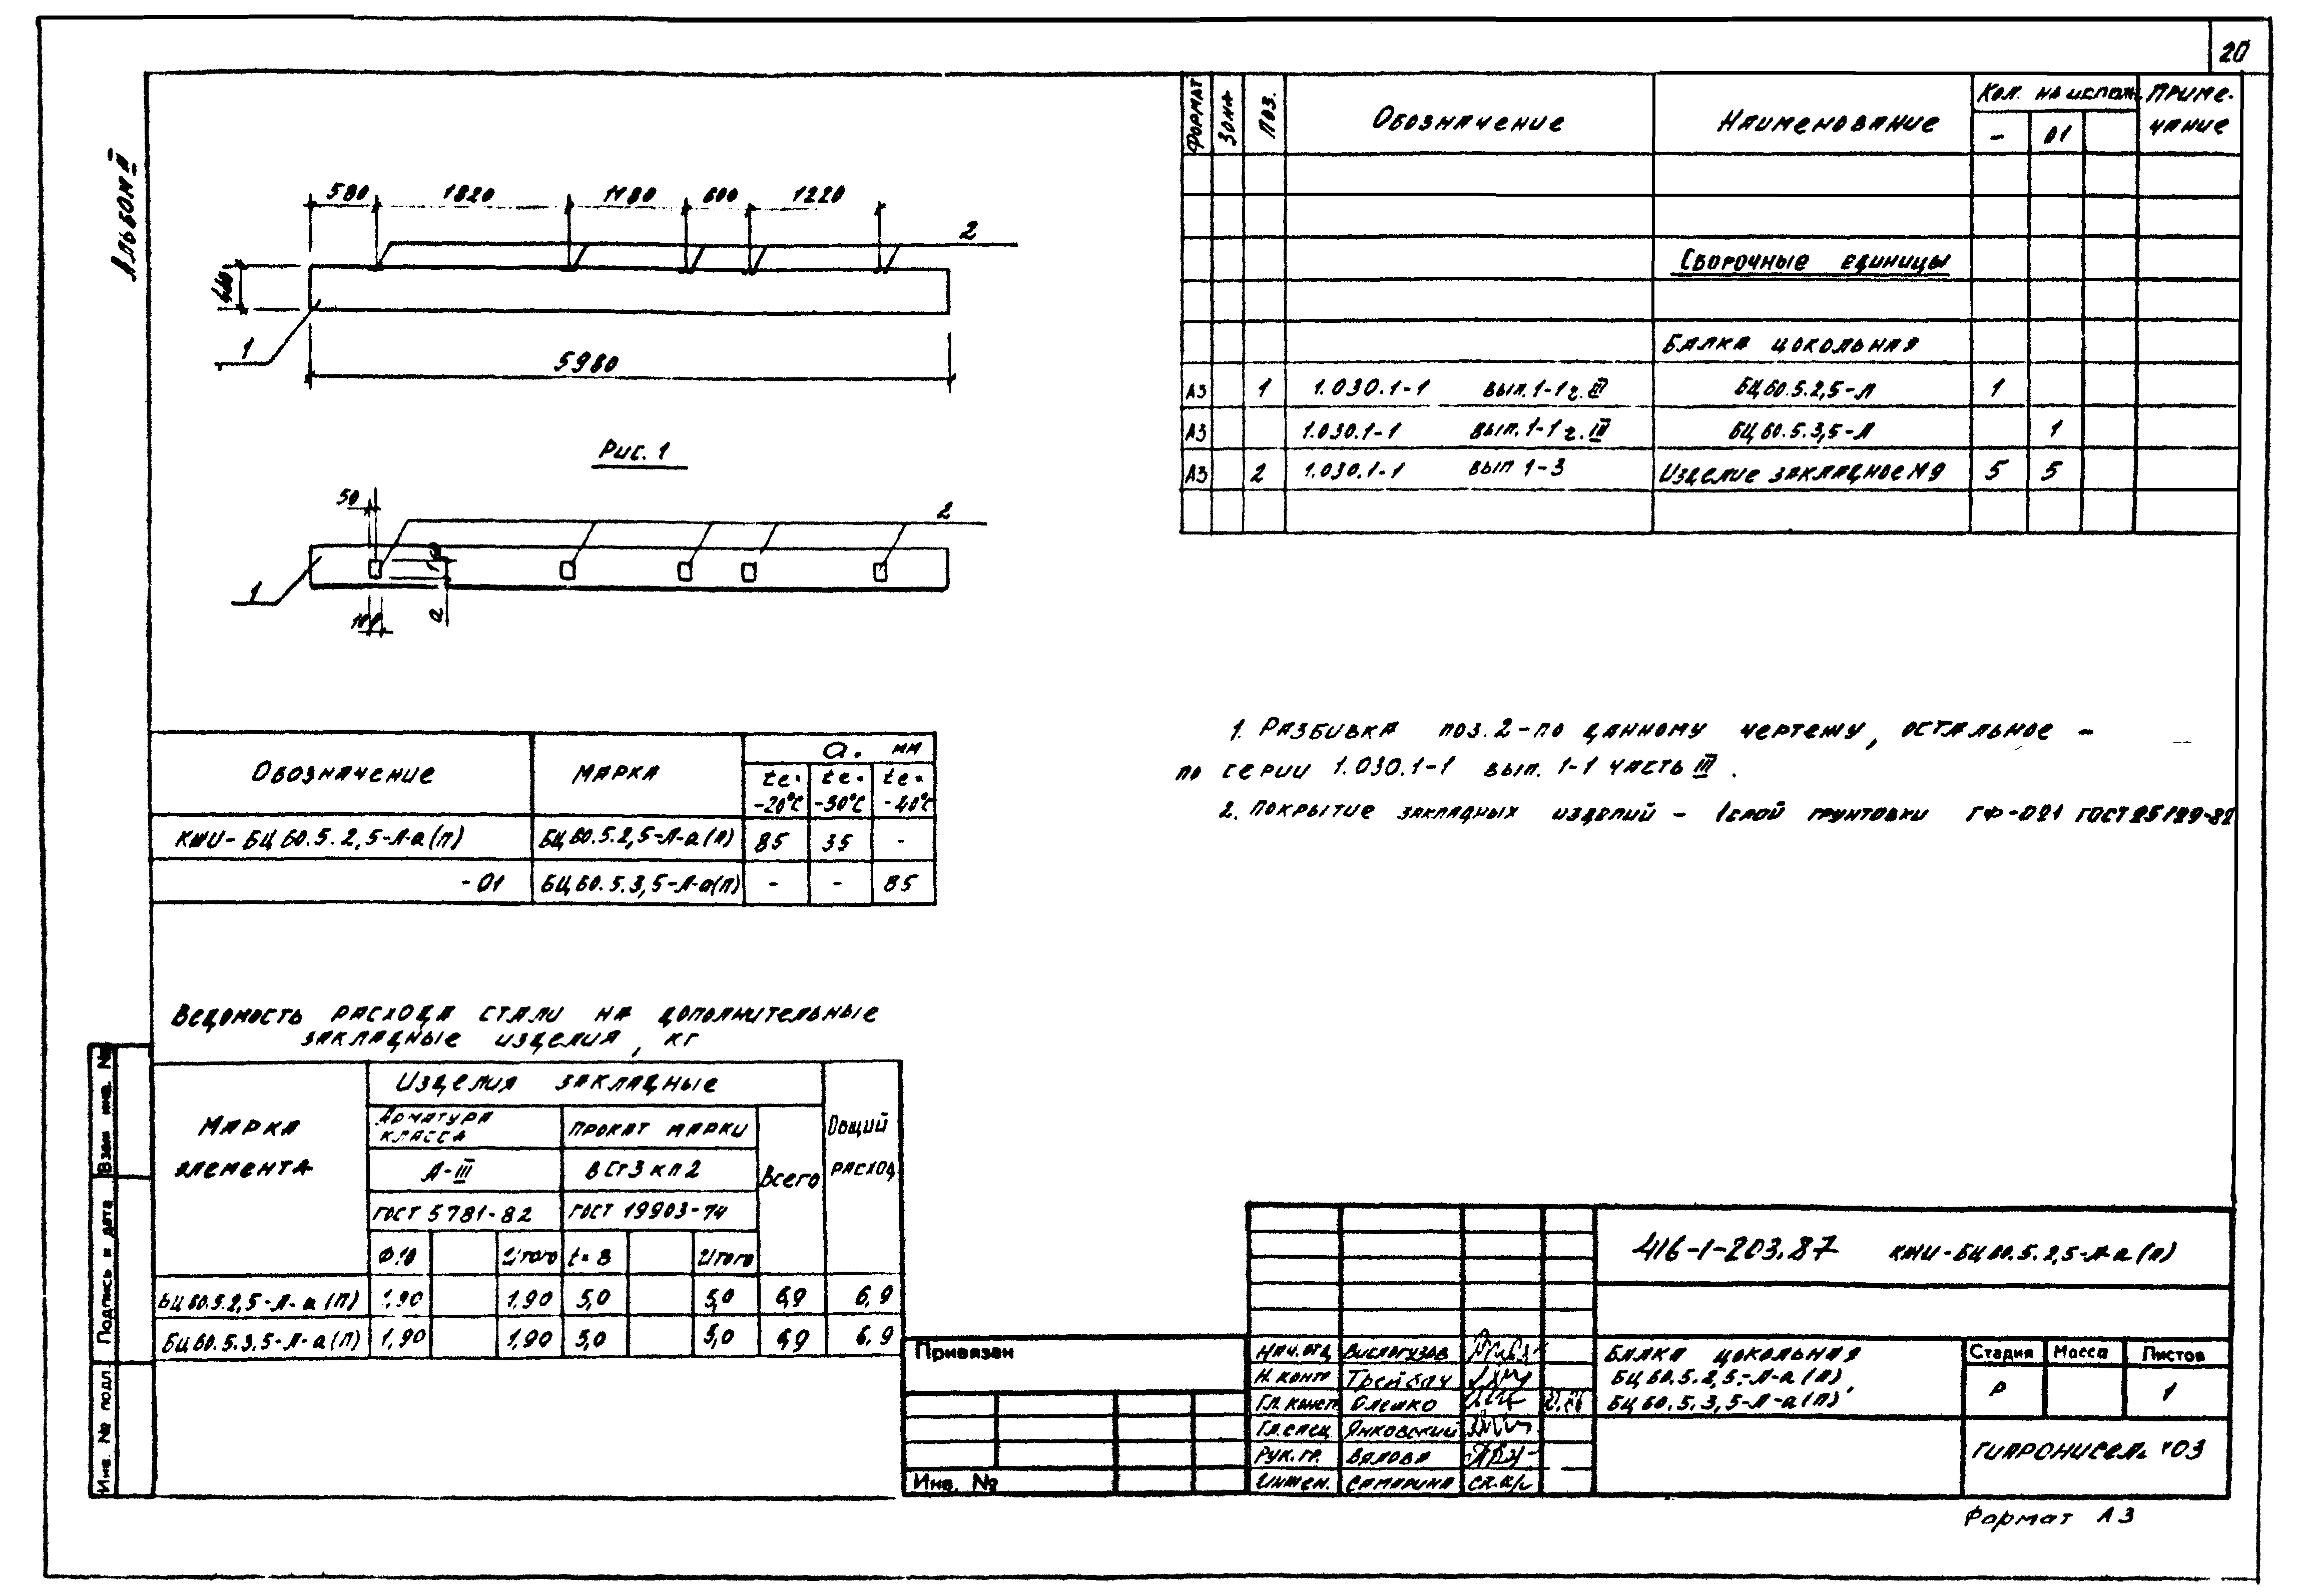 20
Альбом II
580 1820 1180 600 1220
2
1
5980
Рис. 1
50
2
1
100
а
Формат Зона Поз. Обозначение Наименование Кол. на исполн. Приме-
чание
- 01
Сборочные единицы
Балка цокольная
А3 1 1.030.1-1 вып. 1-1 ч. III БЦ 60.5.2,5-Л 1
А3 1.030.1-1 вып. 1-1 ч. III БЦ 60.5.3,5-Л 1
А3 2 1.030.1-1 вып 1-3 Изделие закладное М9 5 5
Обозначение Марка а. мм
te= -20°С te= -30°С te= -40°С
КЖИ-БЦ 60.5.2,5-Л-а(п) БЦ 60.5.2,5-Л-а(п) 85 35 -
-01 БЦ 60.5.3,5-Л-а(п) - - 85
1. Разбивка поз. 2-по данному чертежу, остальное -
по серии 1.030.1-1 вып. 1-1 часть III.
2. Покрытие закладных изделий - 1слой грунтовки ГФ-021 ГОСТ 25129-82
Ведомость расхода стали на дополнительные
закладные изделия, кг
Марка
элемента
Изделия закладные
Общий
расход
Арматура
класса
Прокат марки
Всего
А-III ВСт3кп2
ГОСТ 5781-82 ГОСТ 19903-74
Ф10 Итого t=8 Итого
БЦ 60.5.2,5-Л-а(п) 1,90 1,90 5,0 5,0 6,9 6,9
БЦ 60.5.3,5-Л-а(п) 1,90 1,90 5,0 5,0 6,9 6,9
Взам инв. №
Подпись и дата
Инв. № подл.
Привязан
Инв. №
416-1-203.87 КЖИ-БЦ 60.5.2,5-Л-а(п)
Нач.отд Вислогузов
Н. контр
Гл. конст. Олешко
Гл.спец. Янковский
Рук.гр. Вялова
Инжен. Самарина
Балка цокольная
БЦ 60.5.2,5-Л-а(п),
БЦ 60.5.3,5-Л-а(п)
Стадия Масса Листов
Р 1
Гипронисельхоз
Формат А3